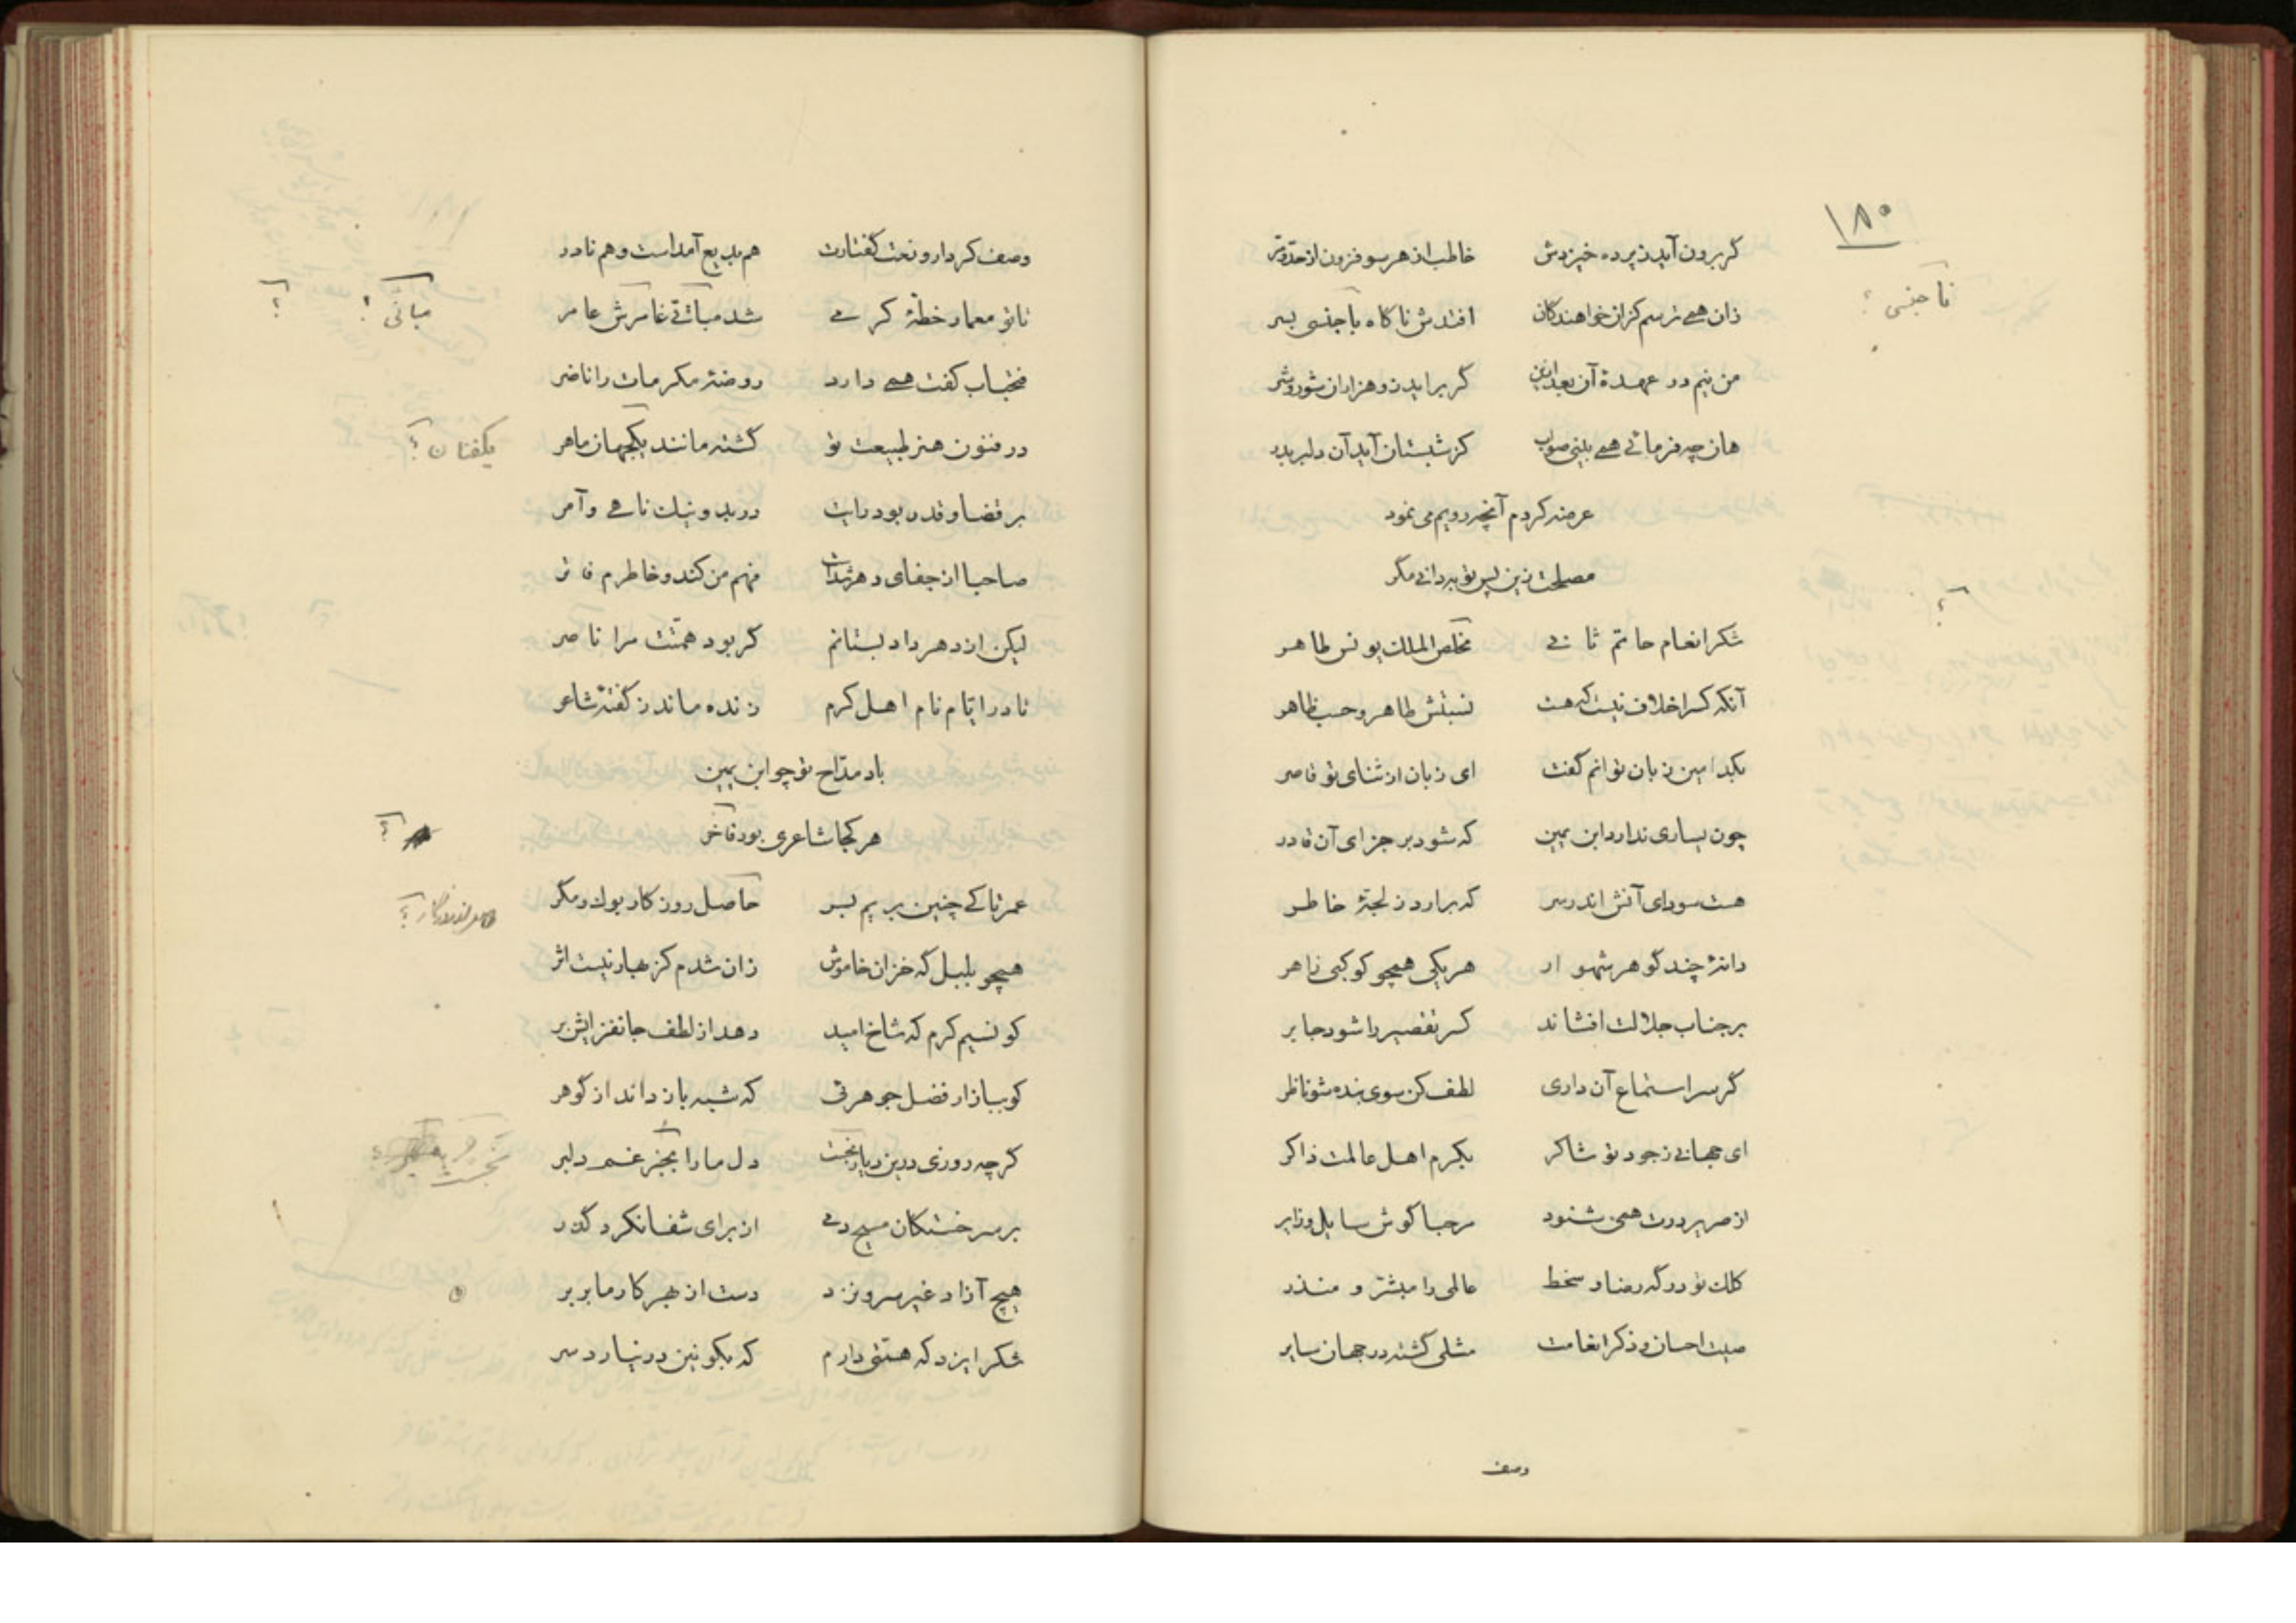 ۱۸۰
گر برون آید ز پرده خیزدش خاطب از هر سو فزون از حد و مر
نا جنسی ؟
زان همی ترسم کزان خواهندکان افتدش ناکاه با جنسی بسر
من نیم در عهدهٔ آن بعد ازین گر برآید زو هزاران شور و شر
هان چه فرمائی همی بینی صواب کز شبستان آید آن دلبر بدر
عرضه کردم آنچه رویم می نمود
مصلحت زین پس تو به دانی مگر
؟
شکر انعام حاتم ثانی مخلص الملک یونس طاهر
آنکه کس را خلاف نیست که هست نسبتش طاهر و حسب ظاهر
بکدامین زبان توانم گفت ای زبان از ثنای تو قاصر
چون یساری ندارد ابن یمین که شود بر جزای آن قادر
هست سودای آنش اندر سر که برآرد ز لجهٔ خاطر
دانهٔ چند گوهر شهوار هر یکی همچو کوکبی زاهر
بر جناب جلالت افشاند کسر تقصیر را شود جابر
گر سر استماع آن داری لطف کن سوی بنده شو ناظر
ای جهانی ز جود تو شاکر بکرم اهل عالمت ذاکر
از صریر درت همی شنود مرحبا گوش سایل و زایر
کلک تو در گه رضا و سخط عالمی را مبشر و منذر
صیت احسان و ذکر انعامت مثلی گشته در جهان سایر
وصف
وصف کردار و نعت گفتارت هم بدیع آمدست و هم نادر
تا تو معمار خطهٔ کرمی شد مبانی غامرش عامر
مبانی ؟ ؟
فتحباب کفت همی دارد روضهٔ مکرمات را ناضر
در فنون هنر طبیعت تو گشته مانند یکجهان ماهر
یکفنان ؟
بر قضا و قدر بود رایت در بد و نیک ناهی و آمر
صاحبا از جفای دهر شدست فهم من کند و خاطرم فاتر
لیکن از دهر داد بستانم گر بود همتت مرا ناصر
تا در ایام نام اهل کرم زنده ماند ز گفتهٔ شاعر
باد مداح تو چو ابن یمین
هر کجا شاعری بود فاخر
؟
عمر تا کی چنین بریم بسر حاصل روزکار بوک و مگر
همچو بلبل که خزان خاموش زان شدم کز بهار نیست اثر
کو نسیم کرم که شاخ امید دهد از لطف جانفزایش بر
کو ببازار فضل جوهریی که شبه باز داند از گوهر
گر چه روزی درین دیار نجست دل ما را بجز غم دلبر
بر سر خستکان مسیح دمی از برای شفا نکرد گذر
هیچ آزاد غیر سرو نزد دست از بهر کار ما بر بر
شکر ایزد که همتی دارم که بکونین در نیارد سر